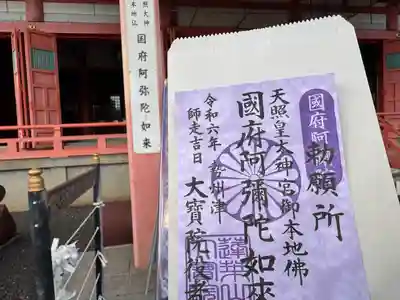 照大神
本地仏
国府阿弥陀如来
國府阿
勅願所
天照皇大神宮御本地佛
國府阿彌陀如来
令和六年
師走吉日
勢州津
大寶院
蓮華山